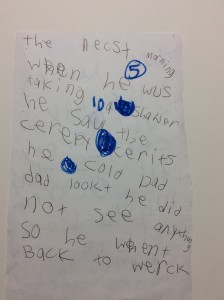 the necst morning
when he wus 5
taking 10 a shawer
he saw the
cerepy cerits
he cold Dad
dad lookt he did
not see anything
so he whent
BACK to werck